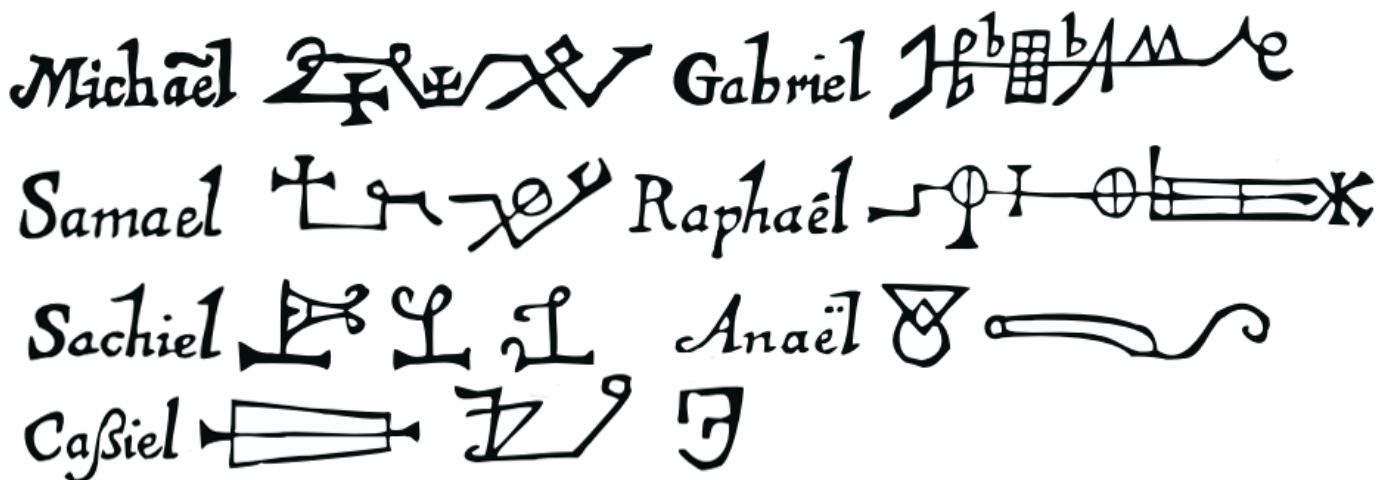 Michãel Gabriel
Samael Raphaël
Sachiel Anaël
Caßiel